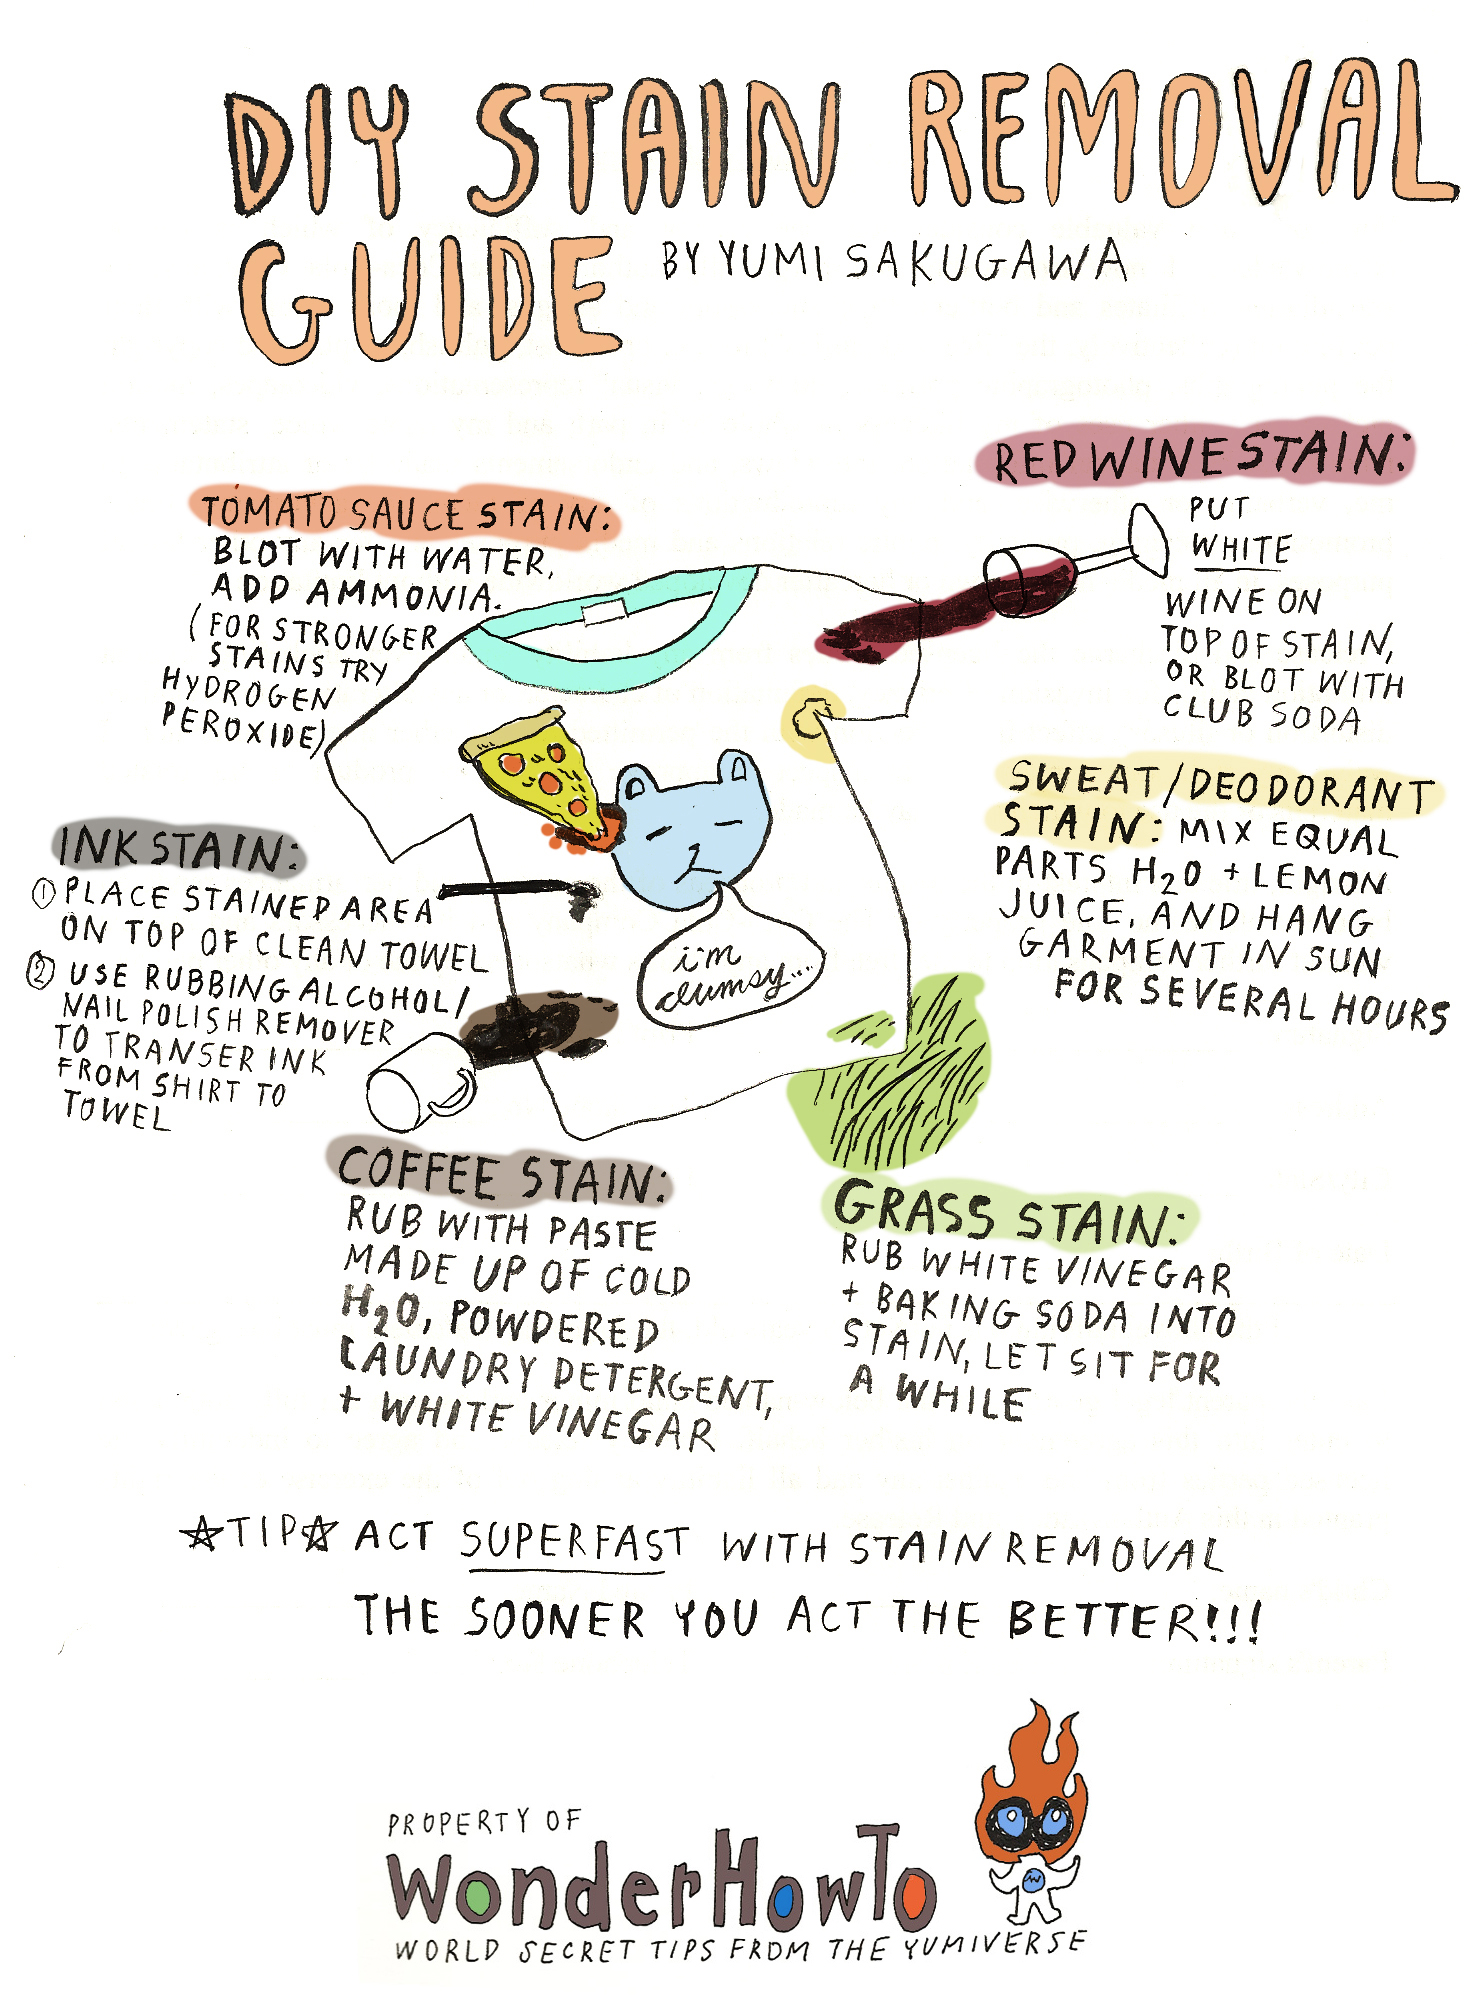 DIY STAIN REMOVAL
GUIDE BY YUMI SAKUGAWA
RED WINE STAIN:
PUT
WHITE
WINE ON
TOP OF STAIN,
OR BLOT WITH
CLUB SODA
TOMATO SAUCE STAIN:
BLOT WITH WATER,
ADD AMMONIA.
(FOR STRONGER
STAINS TRY
HYDROGEN
PEROXIDE)
SWEAT/DEODORANT
STAIN: MIX EQUAL
PARTS H2O + LEMON
JUICE, AND HANG
GARMENT IN SUN
FOR SEVERAL HOURS
INK STAIN:
① PLACE STAINED AREA
ON TOP OF CLEAN TOWEL
② USE RUBBING ALCOHOL/
NAIL POLISH REMOVER
TO TRANSER INK
FROM SHIRT TO
TOWEL
i'm
clumsy...
COFFEE STAIN:
RUB WITH PASTE
MADE UP OF COLD
H2O, POWDERED
LAUNDRY DETERGENT,
+ WHITE VINEGAR
GRASS STAIN:
RUB WHITE VINEGAR
+ BAKING SODA INTO
STAIN, LET SIT FOR
A WHILE
☆TIP☆ ACT SUPERFAST WITH STAIN REMOVAL
THE SOONER YOU ACT THE BETTER!!!
PROPERTY OF
WonderHowTo
WORLD SECRET TIPS FROM THE YUMIVERSE